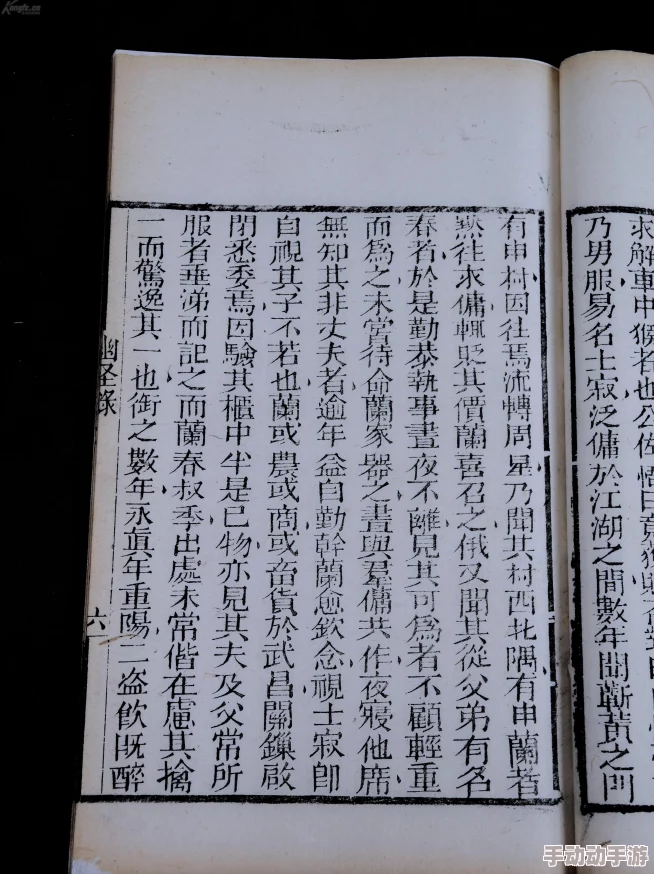 求解車中猴者也公佐悟曰
乃男服易名士寂泛傭於江湖之間數年聞蘄黃之間
有申村因往焉流轉周星乃聞其村西北隅有申蘭者
默往求傭輒貶其價蘭喜召之俄又聞其從父弟有名
春者於是勤恭執事晝夜不離見其可為者不顧輕重
而為之未嘗待命蘭家器之晝與羣傭共作夜寢他席
無知其非丈夫者逾年益自勤幹蘭愈欽念視士寂卽
自視其子不若也蘭或農或商或畜貨於武昌關鏁啟
閉悉委焉因驗其櫃中半是已物亦見其夫及父常所
服者垂涕而記之而蘭春叔季出處未常偕在慮其擒
一而驚逸其一也銜之數年永眞年重陽二盜飲既醉
幽恠錄
六
Kongfz.cn
手动动手游